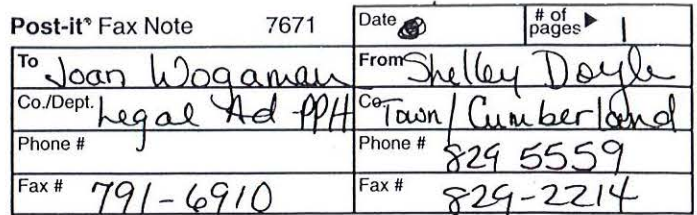 Post-it® Fax Note 7671 Date # of pages ▶ 1
To Joan Wogaman From Shelley Doyle
Co./Dept. Legal Ad-PPH Co. Town/Cumberland
Phone # Phone # 829 5559
Fax # 791-6910 Fax # 829-2214